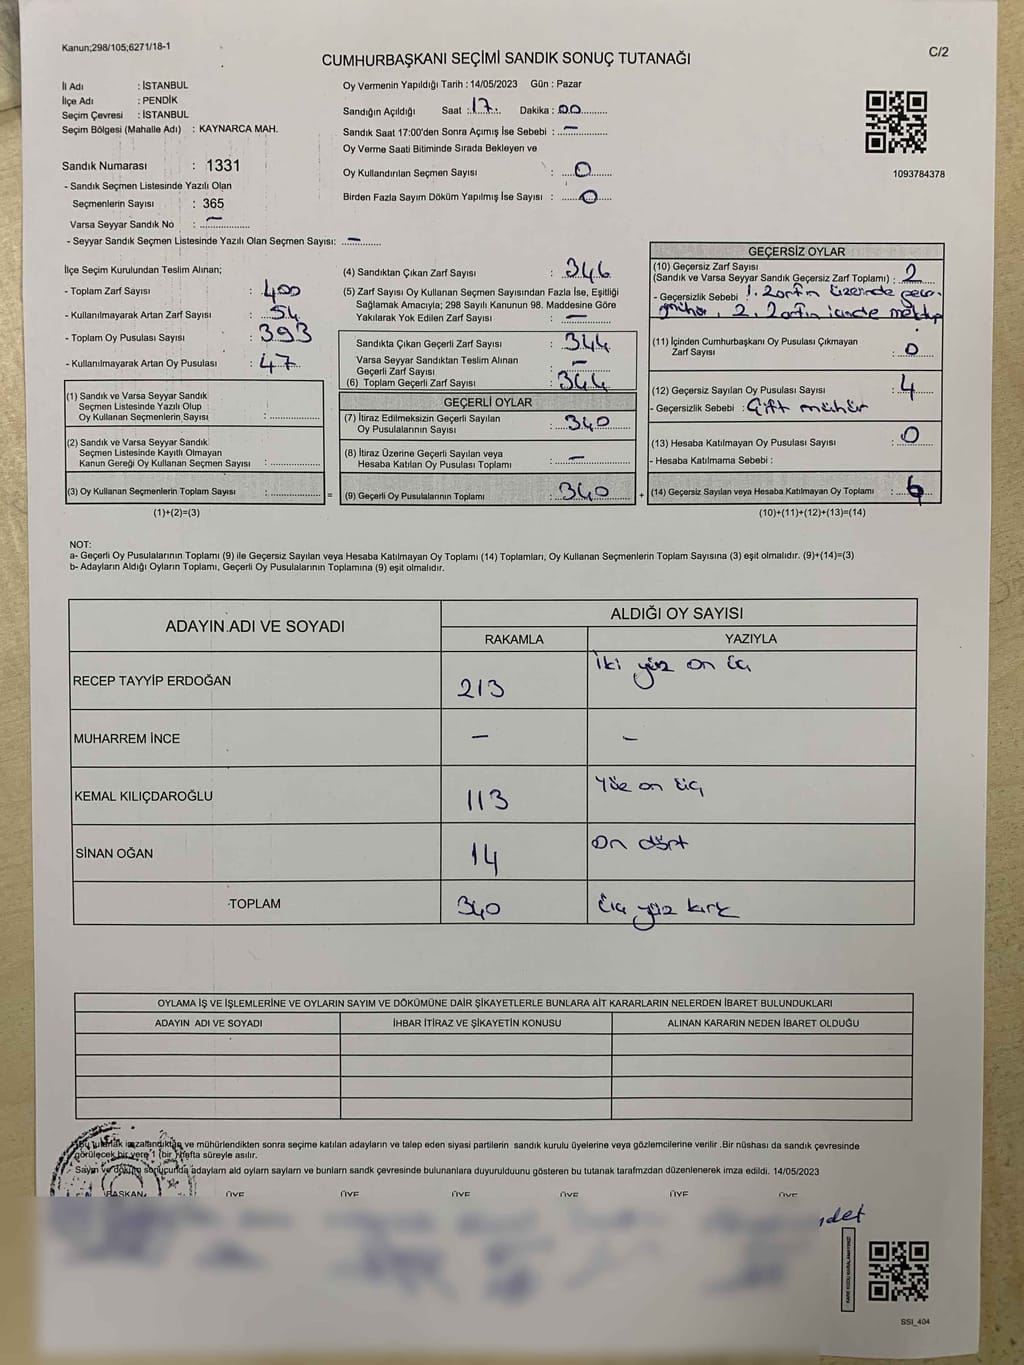 Kanun;298/105;6271/18-1
C/2
CUMHURBAŞKANI SEÇİMİ SANDIK SONUÇ TUTANAĞI
İl Adı : İSTANBUL
İlçe Adı : PENDİK
Seçim Çevresi : İSTANBUL
Seçim Bölgesi (Mahalle Adı) : KAYNARCA MAH.
Sandık Numarası : 1331
- Sandık Seçmen Listesinde Yazılı Olan
Seçmenlerin Sayısı : 365
Varsa Seyyar Sandık No : –
- Seyyar Sandık Seçmen Listesinde Yazılı Olan Seçmen Sayısı: –
Oy Vermenin Yapıldığı Tarih : 14/05/2023 Gün : Pazar
Sandığın Açıldığı Saat : 17 Dakika : 00
Sandık Saat 17:00'den Sonra Açımış İse Sebebi : –
Oy Verme Saati Bitiminde Sırada Bekleyen ve
Oy Kullandırılan Seçmen Sayısı : 0
Birden Fazla Sayım Döküm Yapılmış İse Sayısı : 0
1093784378
İlçe Seçim Kurulundan Teslim Alınan;
- Toplam Zarf Sayısı : 400
- Kullanılmayarak Artan Zarf Sayısı : 54
- Toplam Oy Pusulası Sayısı : 393
- Kullanılmayarak Artan Oy Pusulası : 47
(1) Sandık ve Varsa Seyyar Sandık
Seçmen Listesinde Yazılı Olup
Oy Kullanan Seçmenlerin Sayısı :
(2) Sandık ve Varsa Seyyar Sandık
Seçmen Listesinde Kayıtlı Olmayan
Kanun Gereği Oy Kullanan Seçmen Sayısı :
(3) Oy Kullanan Seçmenlerin Toplam Sayısı :
(1)+(2)=(3)
=
(4) Sandıktan Çıkan Zarf Sayısı : 346
(5) Zarf Sayısı Oy Kullanan Seçmen Sayısından Fazla İse, Eşitliği
Sağlamak Amacıyla; 298 Sayılı Kanunun 98. Maddesine Göre
Yakılarak Yok Edilen Zarf Sayısı : –
Sandıkta Çıkan Geçerli Zarf Sayısı : 344
Varsa Seyyar Sandıktan Teslim Alınan
Geçerli Zarf Sayısı : –
(6) Toplam Geçerli Zarf Sayısı : 344
GEÇERLİ OYLAR
(7) İtiraz Edilmeksizin Geçerli Sayılan
Oy Pusulalarının Sayısı : 340
(8) İtiraz Üzerine Geçerli Sayılan veya
Hesaba Katılan Oy Pusulası Toplamı : –
(9) Geçerli Oy Pusulalarının Toplamı : 340
+
GEÇERSİZ OYLAR
(10) Geçersiz Zarf Sayısı
(Sandık ve Varsa Seyyar Sandık Geçersiz Zarf Toplamı) : 2
- Geçersizlik Sebebi : 1. zarfın üzerinde
mühür, 2. zarfın içinde mektup
(11) İçinden Cumhurbaşkanı Oy Pusulası Çıkmayan
Zarf Sayısı : 0
(12) Geçersiz Sayılan Oy Pusulası Sayısı : 4
- Geçersizlik Sebebi : Çift mühür
(13) Hesaba Katılmayan Oy Pusulası Sayısı : 0
- Hesaba Katılmama Sebebi :
(14) Geçersiz Sayılan veya Hesaba Katılmayan Oy Toplamı : 6
(10)+(11)+(12)+(13)=(14)
NOT:
a- Geçerli Oy Pusulalarının Toplamı (9) ile Geçersiz Sayılan veya Hesaba Katılmayan Oy Toplamı (14) Toplamları, Oy Kullanan Seçmenlerin Toplam Sayısına (3) eşit olmalıdır. (9)+(14)=(3)
b- Adayların Aldığı Oyların Toplamı, Geçerli Oy Pusulalarının Toplamına (9) eşit olmalıdır.
ADAYIN ADI VE SOYADI
ALDIĞI OY SAYISI
RAKAMLA YAZIYLA
RECEP TAYYİP ERDOĞAN 213 İki yüz on üç
MUHARREM İNCE – –
KEMAL KILIÇDAROĞLU 113 Yüz on üç
SİNAN OĞAN 14 On dört
TOPLAM 340 Üç yüz kırk
OYLAMA İŞ VE İŞLEMLERİNE VE OYLARIN SAYIM VE DÖKÜMÜNE DAİR ŞİKAYETLERLE BUNLARA AİT KARARLARIN NELERDEN İBARET BULUNDUKLARI
ADAYIN ADI VE SOYADI İHBAR İTİRAZ VE ŞİKAYETİN KONUSU ALINAN KARARIN NEDEN İBARET OLDUĞU
Bu tutanak imzalandıktan ve mühürlendikten sonra seçime katılan adayların ve talep eden siyasi partilerin sandık kurulu üyelerine veya gözlemcilerine verilir .Bir nüshası da sandık çevresinde
görülecek bir yere 1 (bir) hafta süreyle asılır.
Sayın ve döküm sonucunda adaylarn ald oylarn saylarn ve bunlarn sandk çevresinde bulunanlara duyurulduunu gösteren bu tutanak tarafmzdan düzenlenerek imza edildi. 14/05/2023
BAŞKAN ÜYE ÜYE ÜYE ÜYE ÜYE ÜYE
SSI_404